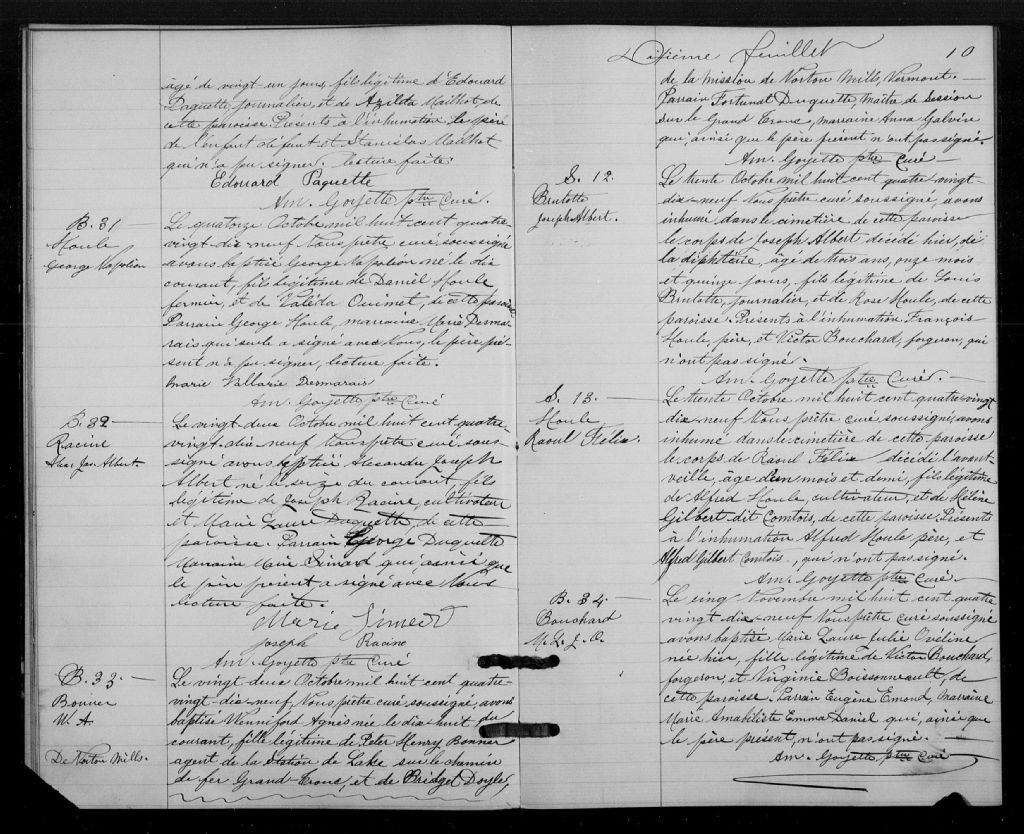 âgé de vingt un jours, fils légitime d'Edouard
Paquette, journalier, et de Azilda Mailhot de
cette paroisse. Présents à l'inhumation le père
de l'enfant defunt et Stanislas Mailhot
qui n'a pu signer. lecture faite.
Edouard Paquette
Am. Goyette ptre Curé.
B. 31
Houle
George Napoléon
Le quatorze Octobre mil huit cent quatre-
vingt-dix-neuf Nous prêtre curé soussigné
avons baptisé George Napoléon né le dix
courant, fils légitime de Daniel Houle
fermier, et de Valéda Ouimet, de cette paroisse
Parrain George Houle, marraine Marie Desma-
rais qui seule a signé avec Nous, le père pré-
sent n'a pu signer, lecture faite.
Marie Vallarie Desmarais
Am. Goyette ptre Curé
B. 32
Racine
Alex. Jos. Albert.
Le vingt-deux Octobre mil huit cent quatre-
vingt-dix-neuf Nous prêtre curé sous-
signé avons baptisé Alexandre Joseph
Albert né le seize du courant, fils
légitime de Joseph Racine, cultivateur
et Marie Laure Duquette de cette
paroisse. Parrain George Duquette
Marraine Marie Simard qui ainsi que
le père présent a signé avec Nous
lecture faite.
Marie Simard
Joseph Racine
Am. Goyette ptre Curé
B. 33
Bonner
W. A.
De Norton Mills.
Le vingt-deux Octobre mil huit cent quatre-
vingt-dix-neuf Nous prêtre curé soussigné, avons
baptisé Winniford Agnès née le dix huit du
courant, fille légitime de Peter Henry Bonner
agent de la station de Lake sur le chemin
de fer Grand Tronc, et de Bridget Doyle,
Dixième feuillet
10
de la mission de Norton Mills, Vermont.
Parrain Fortunat Duquette, Maître de Session
sur le Grand Tronc, marraine Anna Galvin
qui, ainsi que le père présent n'ont pas signé.
Am. Goyette ptre Curé
S. 12.
Brulotte
Joseph Albert.
Le trente Octobre mil huit cent quatre-vingt-
dix-neuf Nous prêtre curé soussigné, avons
inhumé dans le cimetière de cette paroisse
le corps de Joseph Albert décédé hier, de
la diphtérie, âgé de trois ans, onze mois
et quinze jours, fils légitime de Louis
Brulotte, journalier, et de Rose Houle, de cette
paroisse. Présents à l'inhumation François
Houle, père, et Victor Bouchard, forgeron, qui
n'ont pas signé.
Am. Goyette ptre Curé.
S. 13.
Houle
Raoul Félix.
Le trente Octobre mil huit cent quatre-vingt
dix-neuf Nous prêtre curé soussigné, avons
inhumé dans le cimetière de cette paroisse
le corps de Raoul Félix décédé l'avant-
veille, âgé d'un mois et demi, fils légitime
de Alfred Houle, cultivateur, et de Hélène
Gilbert dit Comtois, de cette paroisse. Présents
à l'inhumation Alfred Houle père, et
Alfred Gilbert Comtois, qui n'ont pas signé.
Am. Goyette ptre Curé.
B. 34.
Bouchard
M. L. J. O.
Le cinq Novembre mil huit cent quatre
vingt dix-neuf Nous prêtre curé soussigné
avons baptisé Marie Laure Julie Ovéline
née hier, fille légitime de Victor Bouchard,
forgeron, et Virginie Boissonneault, de
cette paroisse. Parrain Eugène Emond, Marraine
Marie Amabiliste Emma Daniel qui, ainsi que
le père présent, n'ont pas signé.
Am. Goyette ptre Curé